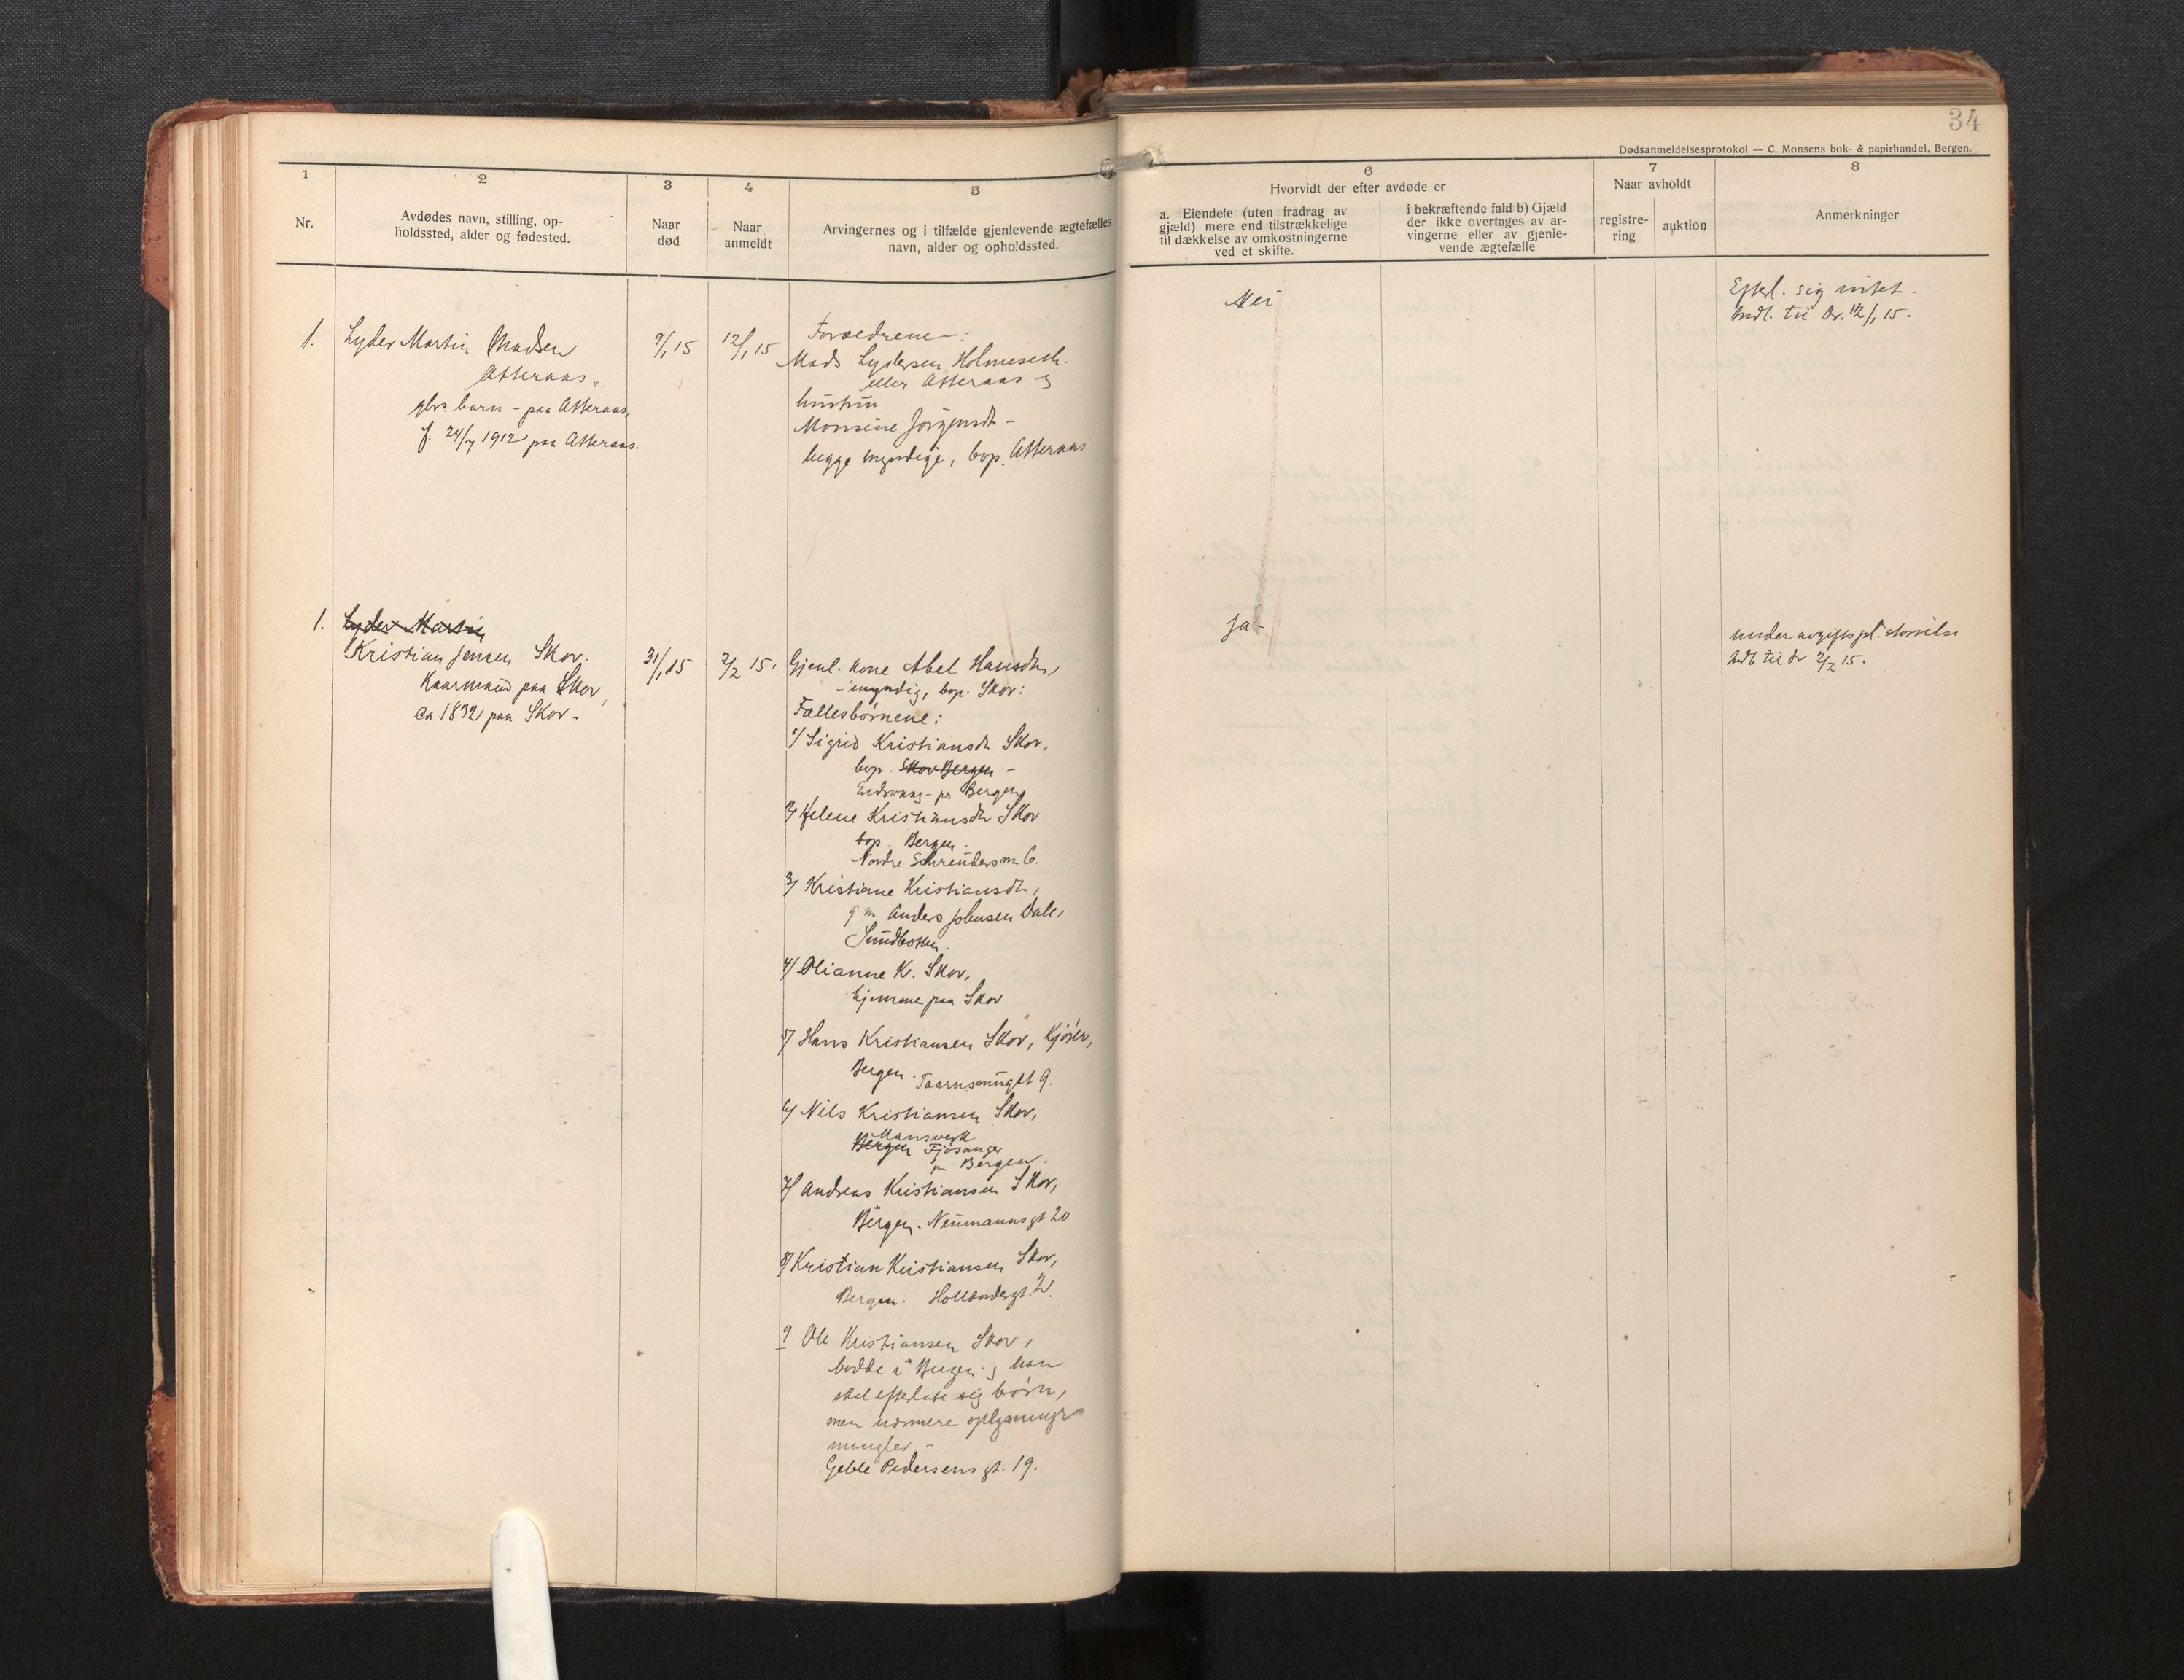 34
Dødsanmeldelsesprotokol — C. Monsens bok- & papirhandel, Bergen.
1
2
3
4
5
6
7
8
Nr.
Avdødes navn, stilling, op-
holdssted, alder og fødested.
Naar
død
Naar
anmeldt
Arvingernes og i tilfælde gjenlevende ægtefælles
navn, alder og opholdssted.
Hvorvidt der efter avdøde er
a. Eiendele (uten fradrag av
gjæld) mere end tilstrækkelige
til dækkelse av omkostningerne
ved et skifte.
i bekræftende fald b) Gjæld
der ikke overtages av ar-
vingerne eller av gjenle-
vende ægtefælle
Naar avholdt
registre-
ring
auktion
Anmerkninger
1.
Lyder Martin Madsen
Atteraas,
gbrs. barn - paa Atteraas,
f. 24/7 1912 paa Atteraas.
9/1 15
12/1 15
Forældrene:
Mads Lydersen Holmeseth
eller Atteraas og
hustru
Monsine Jørgensdt -
begge myndige, bop. Atteraas
Nei
Efterl. sig intet.
Indb. til Dr. 12/1 15.
1.
Lyder Martin
Kristian Jensen Skor.
Kaarmand paa Skor,
ca. 1832 paa Skor -
31/1 15
2/2 15.
Gjenl. kone Abel Hansdtr,
- myndig, bop. Skor:
Fællesbörnene:
1/ Sigrid Kristiansdt Skor,
bop. Skor Bergen -
Eidsvaag - pr Bergen
2/ Helene Kristiansdtr Skor
bop. Bergen.
Nordre Schreudersm 6.
3/ Kristiane Kristiansdt,
g m Anders Johnsen Dale,
Sundbotten.
4/ Olianne K. Skor,
hjemme paa Skor
5/ Hans Kristiansen Skor, Kjörer,
Bergen. Taarnsmuget 9.
6/ Nils Kristiansen Skor,
Mansverk
Bergen Fjösanger
pr Bergen.
7/ Andreas Kristiansen Skor,
Bergen. Neumannsgt 20
8/ Kristian Kristiansen Skor,
Bergen. Hollændergt. 2.
9 Ole Kristiansen Skor,
bodde i Bergen; han
skal efterlate sig börn,
men nærmere oplysninger
mangler -
Geble Pedersens gt. 19.
Ja -
under avgiftspl. störrelse
Indb til dr 2/2 15.